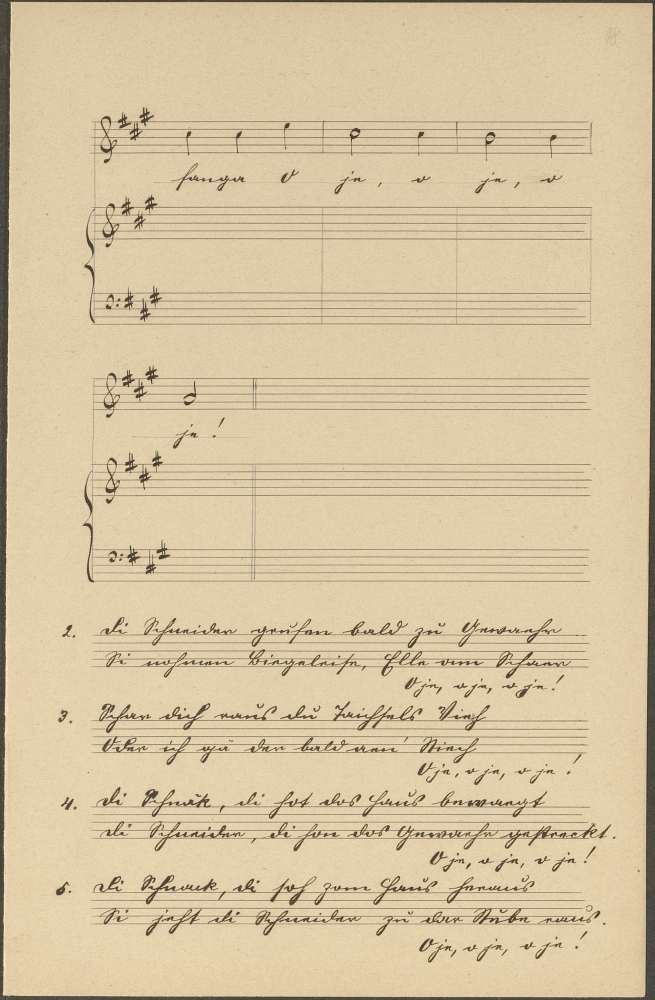 fanga O je, o je, o
je!
2. Di Schneider grusen bald zu Gewaehr
Si nohmen Biegeleise, Elle om Schaer
O je, o je, o je!
3. Schar dich raus du Taichsels Viech
Oder ich gä der bald aen' Stiech
O je, o je, o je!
4. Di Schnäk, di hot dos Haus bewaegt
Di Schneider, di hon dos Gewaehr gestreckt.
O je, o je, o je!
5. Di Schnack, di soh zom Haus heraus
Si jeht di Schneider zu dar Stube raus.
O je, o je, o je!